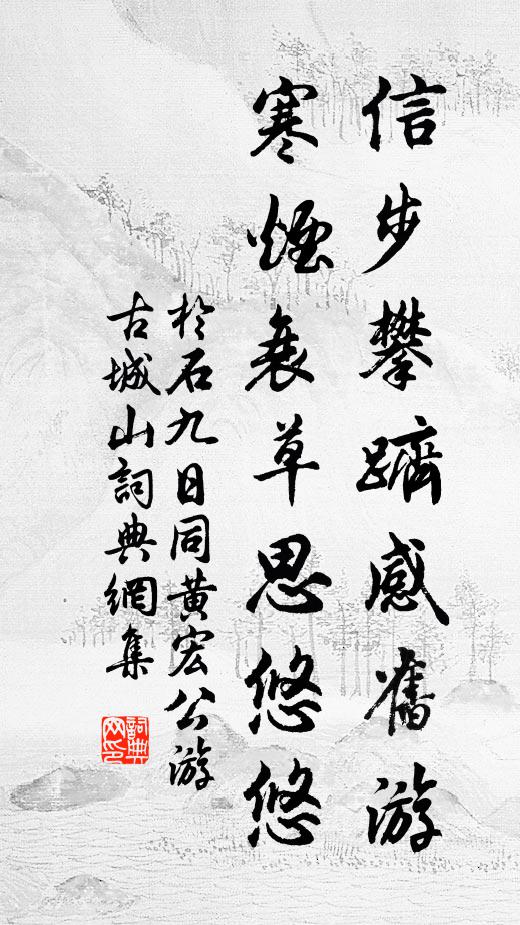 信步攀躋感舊游
寒煙衰草思悠悠
於石九日同黃宏公游
古城山詞典網集
詞典
网印